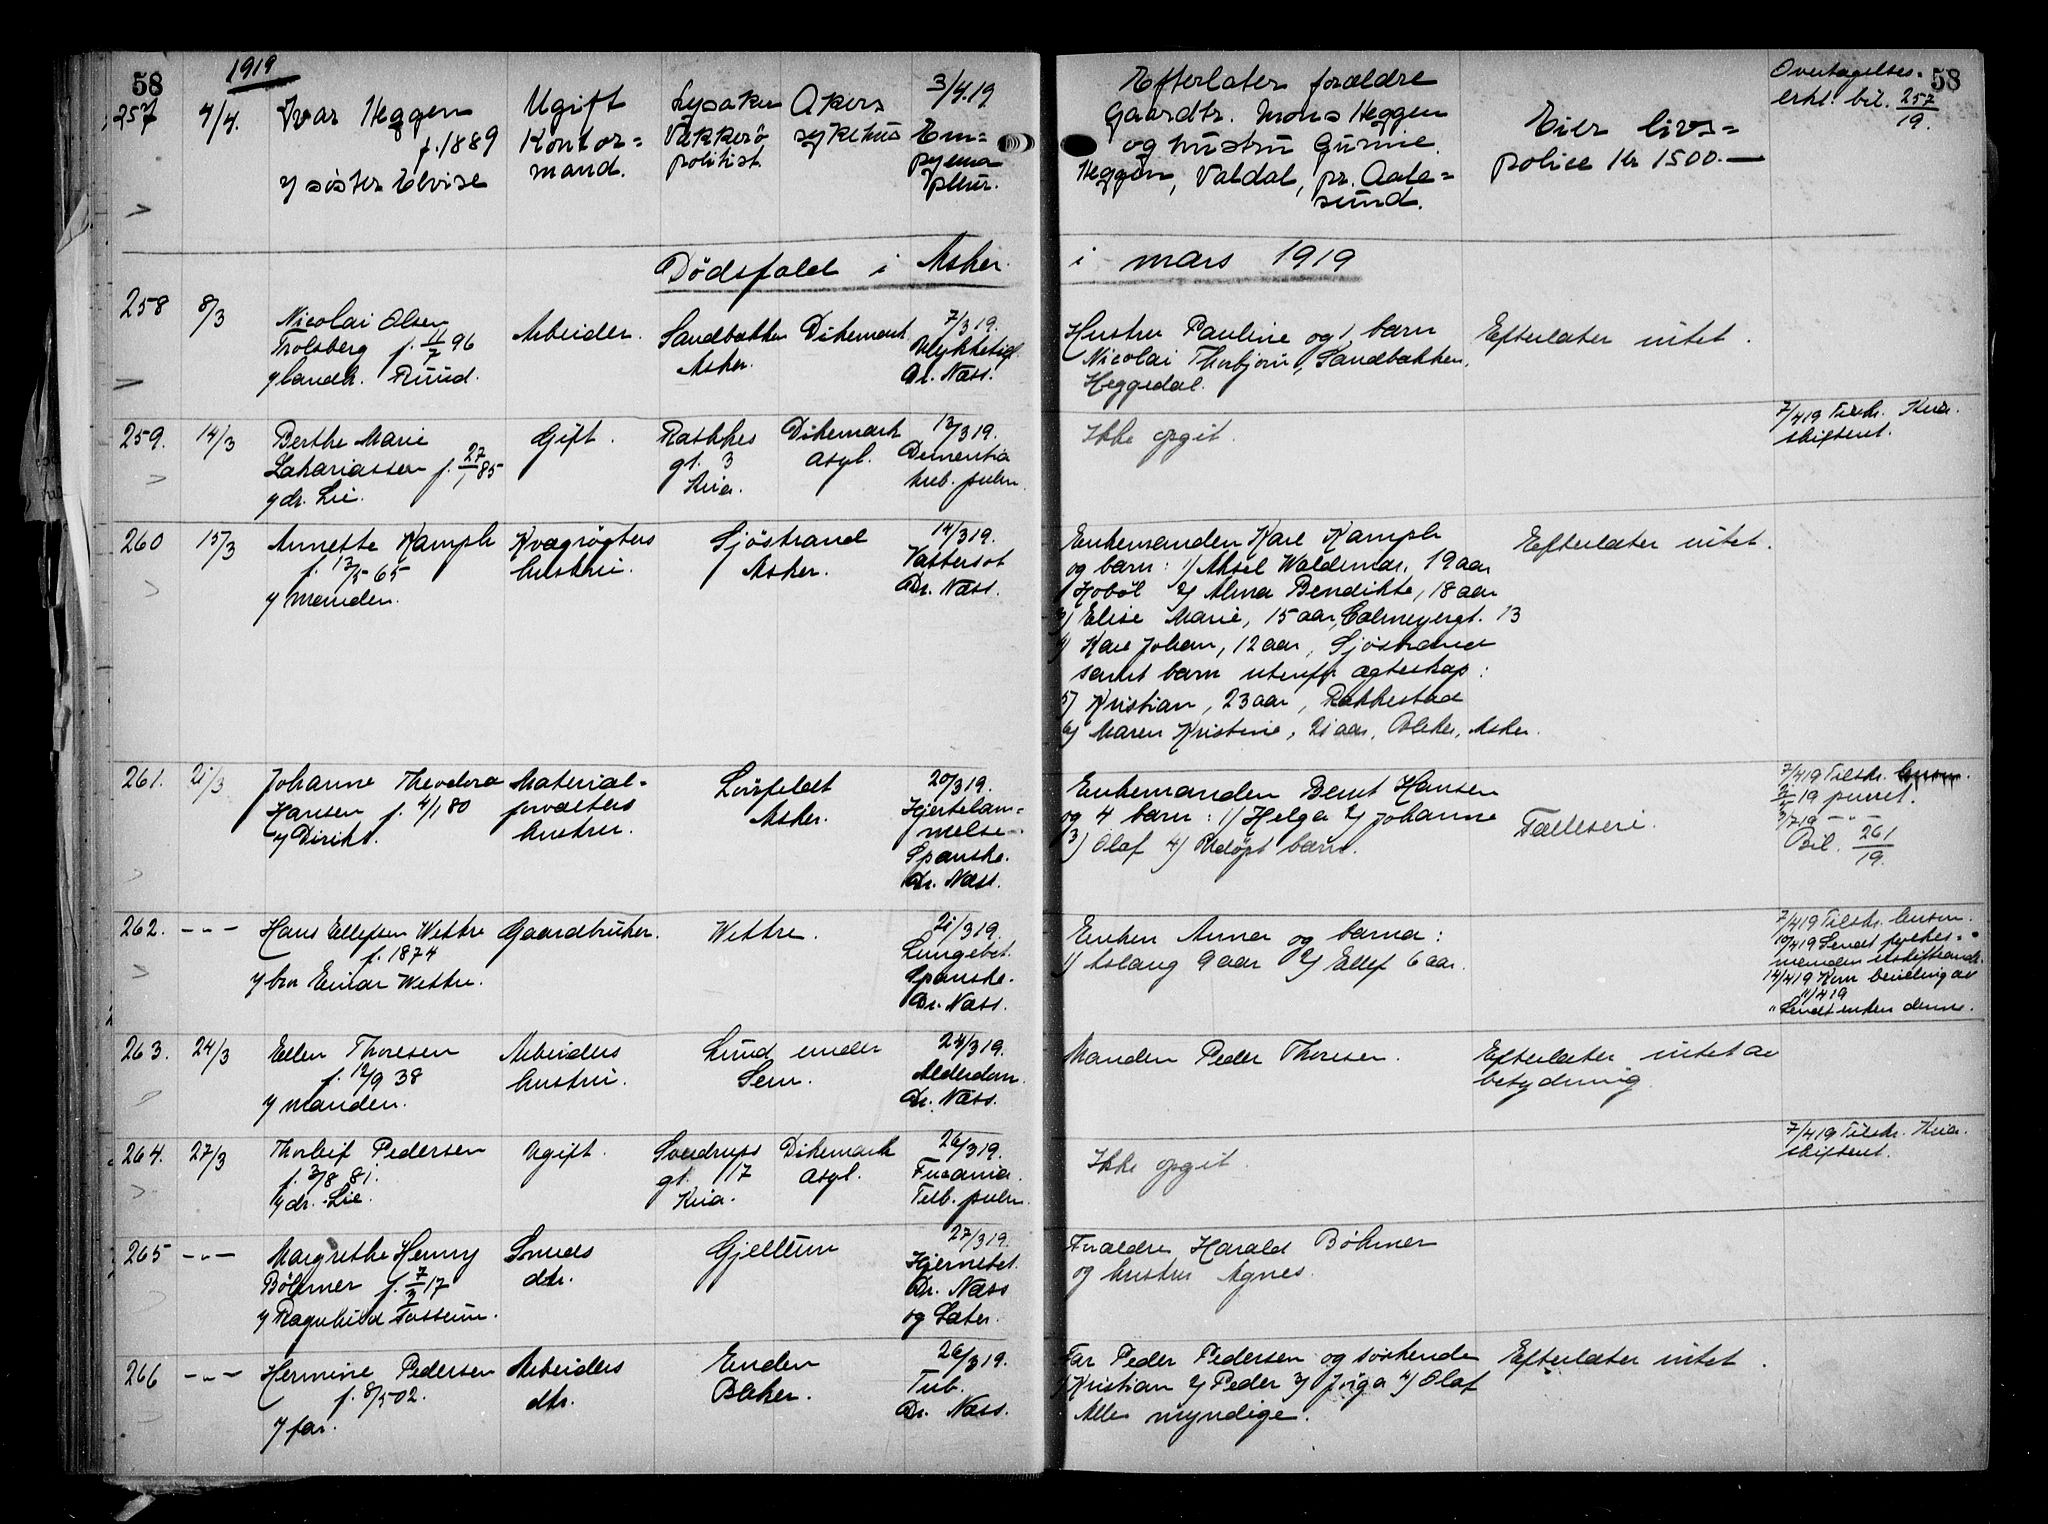 58
1919
58
257 4/4. Ivar Heggen f. 1889
y søster Elvise
Ugift
Kontor=
mand.
Lysaker
Vækkerø
politist.
Akers
sykehus
3/4.19
Em=
pyema
pleur.
Efterlater forældre
Gaardbr. Mons Heggen
og hustru Gurine
Heggen, Valdal, pr. Aale=
sund.
Eier livs=
police Kr 1500.—
Overtagelses-
erkl. bil. 257/19.
Dødsfald i Asker i mars 1919
258 8/3
Nicolai Olsen
Trolsberg f. 11/7 96
y landh. Ruud.
Arbeider.
Sandbakken
Asker.
Dikemark
7/3 19.
Ulykkestilf.
Dr. Næss.
Hustru Pauline og 1 barn
Nicolai Thorbjørn, Sandbakken,
Heggedal.
Efterlater intet.
259. 14/3
Berthe Marie
Zakariassen f. 27/1 85
y dr. Lie.
Gift.
Rathkes
gt. 3
Kria.
Dikemark
asyl.
13/3 19.
Dementia
tub. pulm.
Ikke opgit.
7/4 19 Tilskr. Kria.
skifteret.
260 15/3
Annette Kampli
f. 17/5 65
y manden.
Kvægrøgters
hustru.
Sjøstrand
Asker.
14/3 19.
Vattersot
Dr. Næss.
Enkemanden Karl Kampli
og barn: 1/ Aksel Waldemar, 19 aar
Hobøl 2/ Alma Bendikte, 18 aar
3/ Elise Marie, 15 aar, Calmeyersgt. 13
4/ Karl Johan, 12 aar, Sjøstrand
samt barn utenfr ægteskap:
5/ Kristian, 23 aar, Rakkestad
6/ Maren Kristine, 21 aar, Blaker, Asker.
Efterlater intet.
261. 21/3
Johanne Theodora
Hansen f. 4/1 80
y Dirikt.
Material-
forvalters
hustru.
Løvfeldt
Asker.
20/3 19.
Hjertelam=
melse.
Spanske.
Dr. Næss.
Enkemanden Bernt Hansen
og 4 barn: 1/ Helga 2/ Johanne
3/ Olaf 4/ Udøpt barn.
Fælleseie.
7/4 19 Tilskr.
2/5 19 purret.
3/7 19 -"-
Bil. 261/19.
262. -"-
Hans Ellefsen Wettre
f. 1874
y bror Einar Wettre.
Gaardbruker.
Wettre.
21/3 19.
Lungebet.
Spanske.
Dr. Næss.
Enken Anna og barna:
1/ Aslaug 9 aar 2/ Ellef 6 aar.
7/4 19 Tilskr. lensm.
10/4 19 Sendt fylkes-
manden uskifteandr.
14/4 19 Kom bevilling av
11/4 19
" Sendt enken denne.
263. 24/3
Ellen Thoresen
f. 12/9 38
y manden.
Arbeiders
hustru.
Lund under
Sem.
24/3 19.
Alderdom.
Dr. Næss.
Manden Peder Thoresen.
Efterlater intet av
betydning.
264. 27/3
Thorleif Pedersen
f. 3/8 81.
y dr. Lie.
Ugift.
Sverdrups
gt. 17
Kria.
Dikemark
asyl.
26/3 19.
Tub. pulm.
Ikke opgit.
7/4 19 Tilskr. Kria.
skifteret.
265 -"-
Margrethe Henny
Bøhmer f. 7/3 17
y Ragnhild Tossum.
Smeds
dtr.
Gjellum
27/3 19.
Hjernebet.
Dr. Næss
og Sæter.
Forældre Harald Bøhmer
og hustru Agnes.
266 -"-
Hermine Pedersen
f. 8/5 02.
y far.
Arbeiders
dtr.
Enden
Blaker.
26/3 19.
Tub.
Dr. Næss.
Far Peder Pedersen og søskende
1/ Kristian 2/ Peder 3/ Inga 4/ Olaf
Alle myndige.
Efterlater intet.